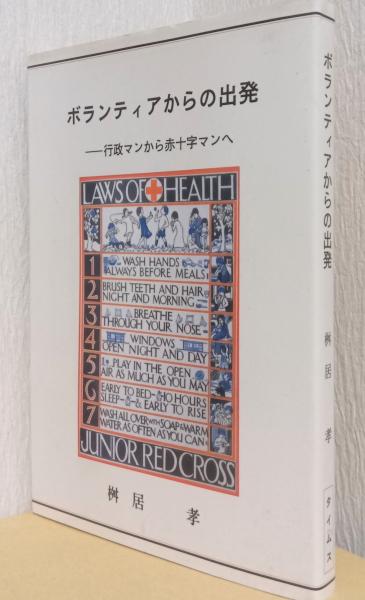 ボランティアからの出発
——行政マンから赤十字マンへ
LAWS OF HEALTH
1 WASH HANDS
ALWAYS BEFORE MEALS
2 BRUSH TEETH AND HAIR
NIGHT AND MORNING
3 BREATHE
THROUGH YOUR NOSE
4 WINDOWS
OPEN NIGHT AND DAY
5 PLAY IN THE OPEN
AIR AS MUCH AS YOU MAY
6 EARLY TO BED-10 HOURS
SLEEP- & EARLY TO RISE
7 WASH ALL OVER WITH SOAP & WARM
WATER AS OFTEN AS YOU CAN
JUNIOR RED CROSS
桝居 孝
ボランティアからの出発
桝居 孝
タイムス